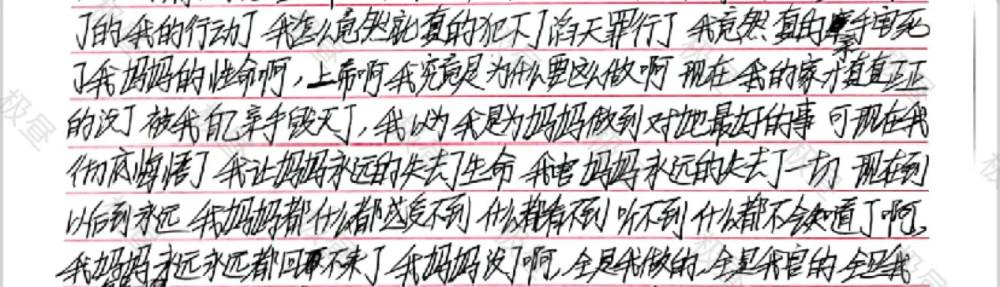 了的我的行动了 我怎么竟然就真的犯下了滔天罪行了 我竟然真的亲手害死
了我妈妈的性命啊，上帝啊 我究竟是为什么要这么做啊 现在 我的家才真真正正
的没了 被我自己亲手毁灭了，我以为我是为妈妈做到对她最好的事 可现在我
彻底悔悟了 我让妈妈永远的失去了生命 我害妈妈永远的失去了一切 现在到
以后到永远 我妈妈都什么都感受不到 什么都看不到 听不到 什么都不会知道了啊，
我妈妈永远永远都回不来了 我妈妈没了啊，全是我做的，全是我害的 全是我
极昼
极昼
极昼
极昼